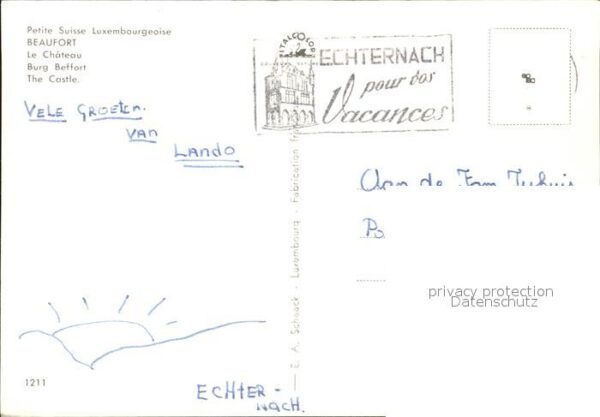 Petite Suisse Luxembourgeoise
BEAUFORT
Le Château
Burg Beffort
The Castle.
ECHTERNACH
pour vos
Vacances
VELE GROETEN.
VAN
LANDO
Aan de Fam
Po
E. A. Schaack - Luxembourg - Fabrication
privacy protection
Datenschutz
1211
ECHTER -
NACH.